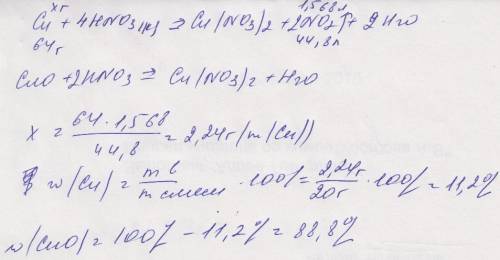 xг 1,568л
Cu + 4HNO3(к) = Cu(NO3)2 + 2NO2↑ + 2H2O
64г 44,8л
CuO + 2HNO3 = Cu(NO3)2 + H2O
x = 64·1,568 / 44,8 = 2,24г (m(Cu))
w(Cu) = m в / m смеси · 100% = 2,24г / 20г · 100% = 11,2%
w(CuO) = 100% - 11,2% = 88,8%